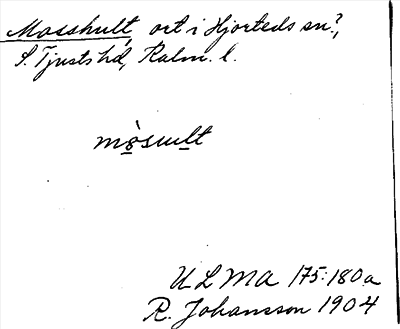 Mosshult, ort i Hjorteds sn?,
S. Tjusts hd, Kalm. l.
mòsult
ULMA 175:180a
R. Johansson 1904